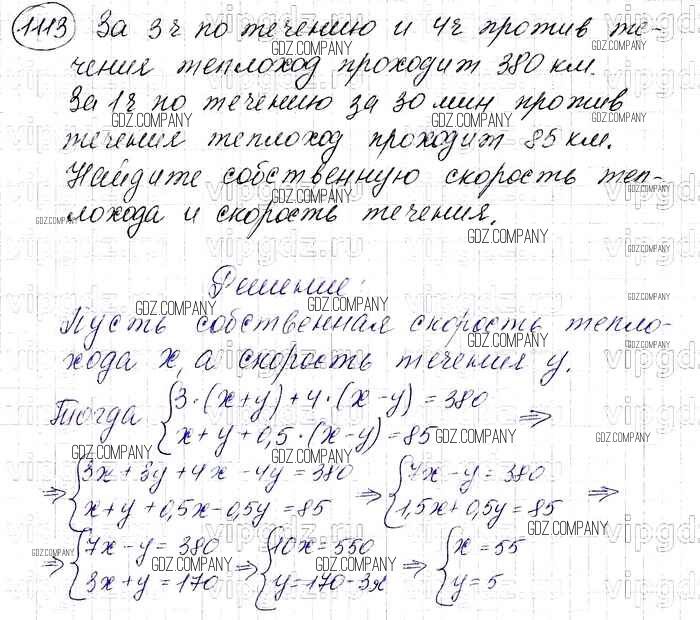 1113 За 3ч по течению и 4ч против те-
чения теплоход проходит 380 км.
За 1ч по течению за 30 мин против
течения теплоход проходит 85 км.
Найдите собственную скорость теп-
лохода и скорость течения.
Решение:
Пусть собственная скорость тепло-
хода x, а скорость течения y.
Тогда {3·(x+y)+4·(x-y)=380 ⇒
{x+y+0,5·(x-y)=85
⇒ {3x+3y+4x-4y=380 ⇒ {7x-y=380 ⇒
{x+y+0,5x-0,5y=85 {1,5x+0,5y=85
⇒ {7x-y=380 ⇒ {10x=550 ⇒ {x=55
{3x+y=170 {y=170-3x {y=5
GDZ.COMPANY
vipgdz.ru